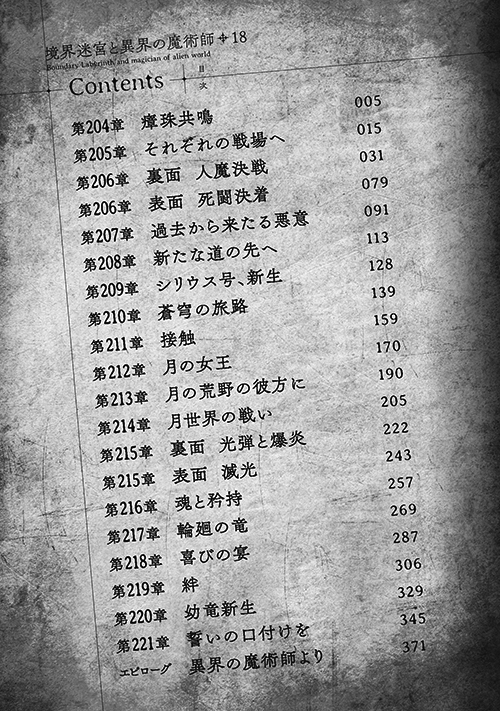 境界迷宮と異界の魔術師 18
Boundary Labyrinth and magician of alien world
Contents 目次
第204章 瘴珠共鳴 005
第205章 それぞれの戦場へ 015
第206章 裏面 人魔決戦 031
第206章 表面 死闘決着 079
第207章 過去から来たる悪意 091
第208章 新たな道の先へ 113
第209章 シリウス号、新生 128
第210章 蒼穹の旅路 139
第211章 接触 159
第212章 月の女王 170
第213章 月の荒野の彼方に 190
第214章 月世界の戦い 205
第215章 裏面 光弾と爆炎 222
第215章 表面 滅光 243
第216章 魂と矜持 257
第217章 輪廻の竜 269
第218章 喜びの宴 287
第219章 絆 306
第220章 幼竜新生 329
第221章 誓いの口付けを 345
エピローグ 異界の魔術師より 371